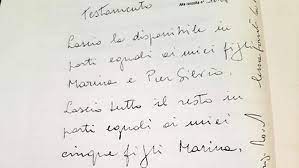 Testamento
Lascio la disponibile in
parti eguali ai miei figli
Marina e Pier Silvio.
Lascio tutto il resto in
parti eguali ai miei
cinque figli Marina,